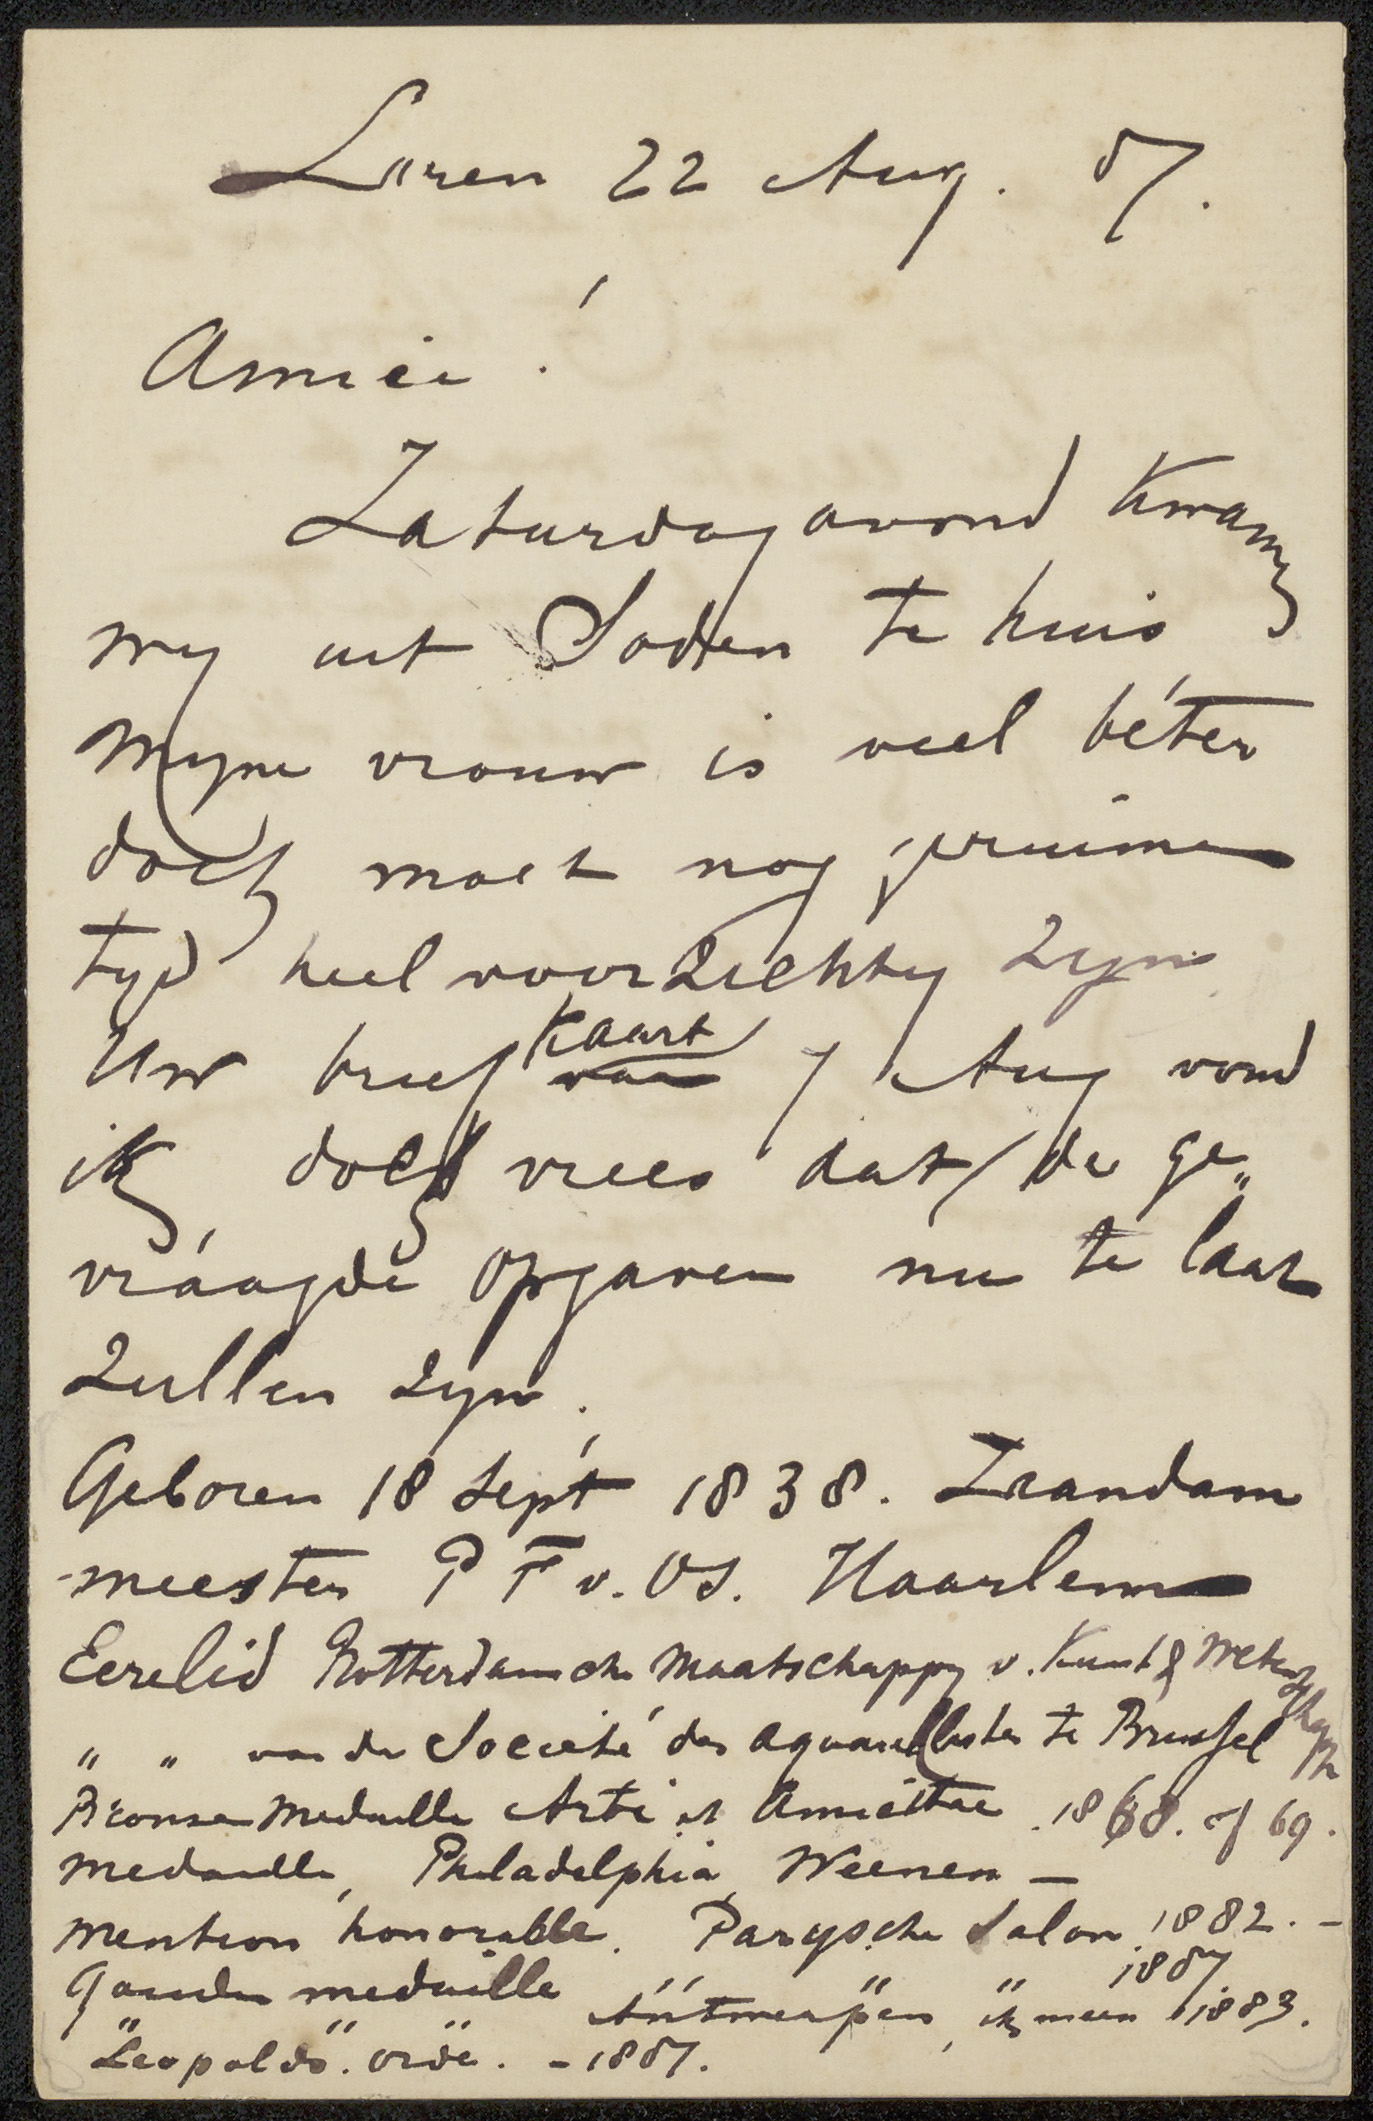 Laren 22 Aug. 87.
Amice!
Zaturdag avond kwam
wy uit Soden te huis
Myne vrouw is veel béter
doch moet nog geruimen
tyd heel voorzichtig zyn
Uw brief kaart van 7 Aug vond
ik, doch vrees dat de ge„
vráagde opgaven nu te laat
zullen zyn.
Geboren 18 Sept 1838. Zaandam
meester P F v. OS. Haarlem
Eerelid Rotterdamsche Maatschappy v. Kunst & Wetenschappen
„ „ van de Societé des aquarellistes te Brussel
Bronse Medaille Arti et Amicitiae 1868. of 69.
Medaille, Philadelphia, Weenen —
Mention honorable. Parysche Salon 1882. –
Gouden medaille " " " 1887.
" " Antwerpen, ik meen 1883.
Leopolds. orde. – 1887.